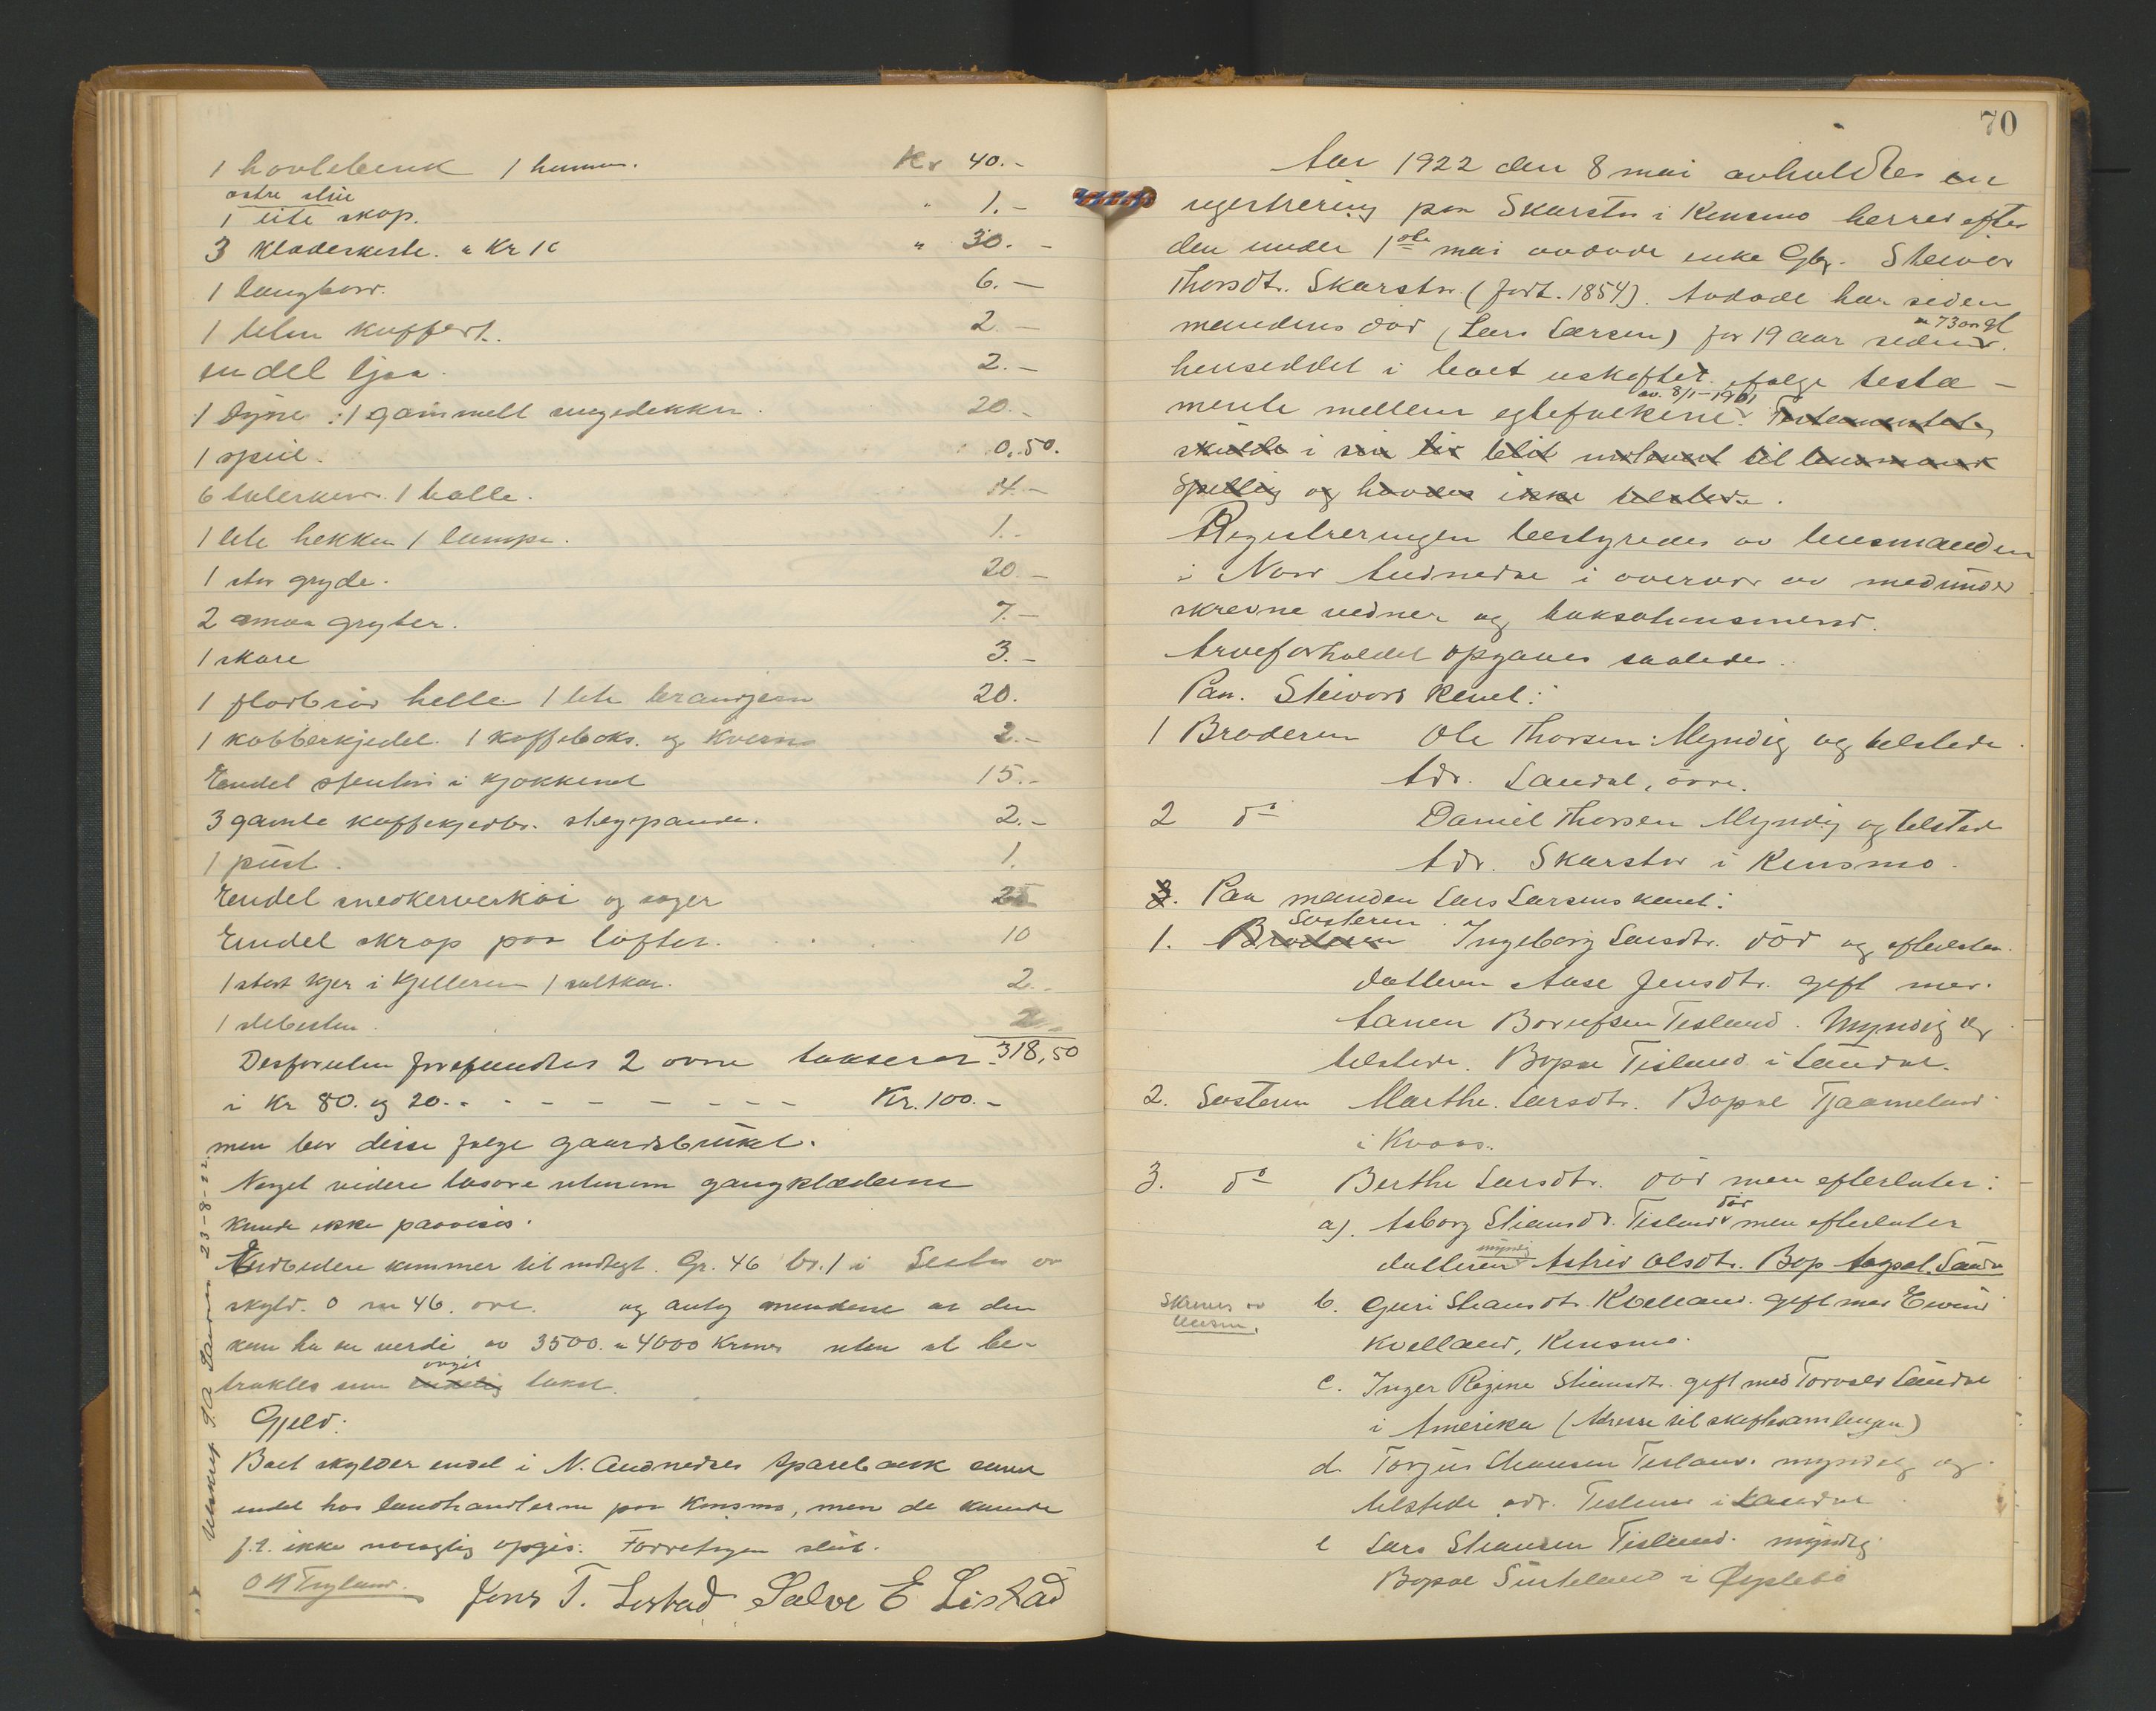 1 hovlebenk 1 hammer. Kr 40.-
1 lite skap. " 1.-
3 klæderkiste. a Kr 10 " 30.-
1 langbord. 6.-
1 liten kuffert. 2.-
endel ljaa. 2.-
1 dyne : 1 gammelt sengedekken. 20.-
1 speil. 0.50.
6 talerkener. 1 bolle. 4.-
1 lite 1 lampe. 1.-
1 stor gryde. 20.-
2 smaa gryter. 7.-
1 skare 3.-
1 flatbrød helle 1 lite 20.
1 kobberkjedel. 1 kaffeboks. og kvern 2.-
Endel i kjøkkenet 15.-
3 gamle kaffekjedler. stegpande. 2.-
1 pust. 1.
Endel snedkerverktøi og sager 25
Endel skrap paa loftet. 10
1 stort kjer i kjelleren 1 saltkar. 2.-
1 slibesten. 2.-
Desforuten forefandtes 2 ovne takseret 318,50
i Kr 80. og 20.- - - - - - - Kr. 100.-
men bør disse følge gaardsbruket.
Noget videre løsøre utenom gangklæderne
kunde ikke paavises.
kommer til indtegt. Gr. 46 br. 1 i
skyld. 0 m 46. øre. og antog mendene at den
kan ha en verdi av 3500. a 4000 Kroner uten at be-
traktes som endelig takst.
Gjeld:
Boet skylder endel i N. Audnedals Sparebank samt
endel hos landhandlerne paa Konsmo, men de kunde
f.t. ikke nøiagtig opgis. Forretningen slut.
O N Tryland. Jens T. Listad Salve E Listad
Utskrift 23-8-22.
70
Aar 1922 den 8 mai avholdtes en
registrering paa Skarstø i Konsmo herred efter
den under 1ste mai avdøde enke Gbr. Steivor
Thorsdt. Skarstø. (født. 1854). Avdøde har siden
mandens død (Lars Larsen) for 19 aar siden 73 aar gl
hensiddet i boet uskiftet ifølge testa-
mente mellem egtefolkene. av. 8/1-1901 Testamentet
skulde i sin tid blit indlevert til lensmand
Spilling og havdes ikke tilstede.
Registreringen bestyredes av lensmanden
i Nord Audnedal i overvær av medunder
skrevne vidner og taksationsmend.
Arveforholdet opgaves saaledes.
Paa. Steivors kant:
1 Broderen Ole Thorsen. Myndig og tilstede.
Adr. Laudal, øvre.
2 do Daniel Thorsen Myndig og tilstede
Adr. Skarstø i Konsmo.
3. Paa manden Lars Larsens kant:
1. Broderen Søsteren Ingeborg Larsdtr. død og efterlater
datteren Aase Jensdtr. gift med.
Tisland. Myndig og
tilstede. Bopæl Tisland i Laudal.
2. Søsteren Marthe. Larsdtr. Bopæl Tjaameland
i Kvaas.
3. do Berthe Larsdtr. død men efterlater:
a). Asborg Tisland død men efterlater
datteren myndig Astrid Olsdtr. Bop
Skrives av
b. Guri Kvelland. gift med Eivind
Kvelland, Konsmo.
c. Inger Regine gift med Torvald Laudal
i Amerika (Adresse til skiftesamlingen)
d. Torjus Tisland. myndig og
tilstede adr. Tisland i Laudal.
e Lars Tisland. myndig
Bopæl i Øyslebø